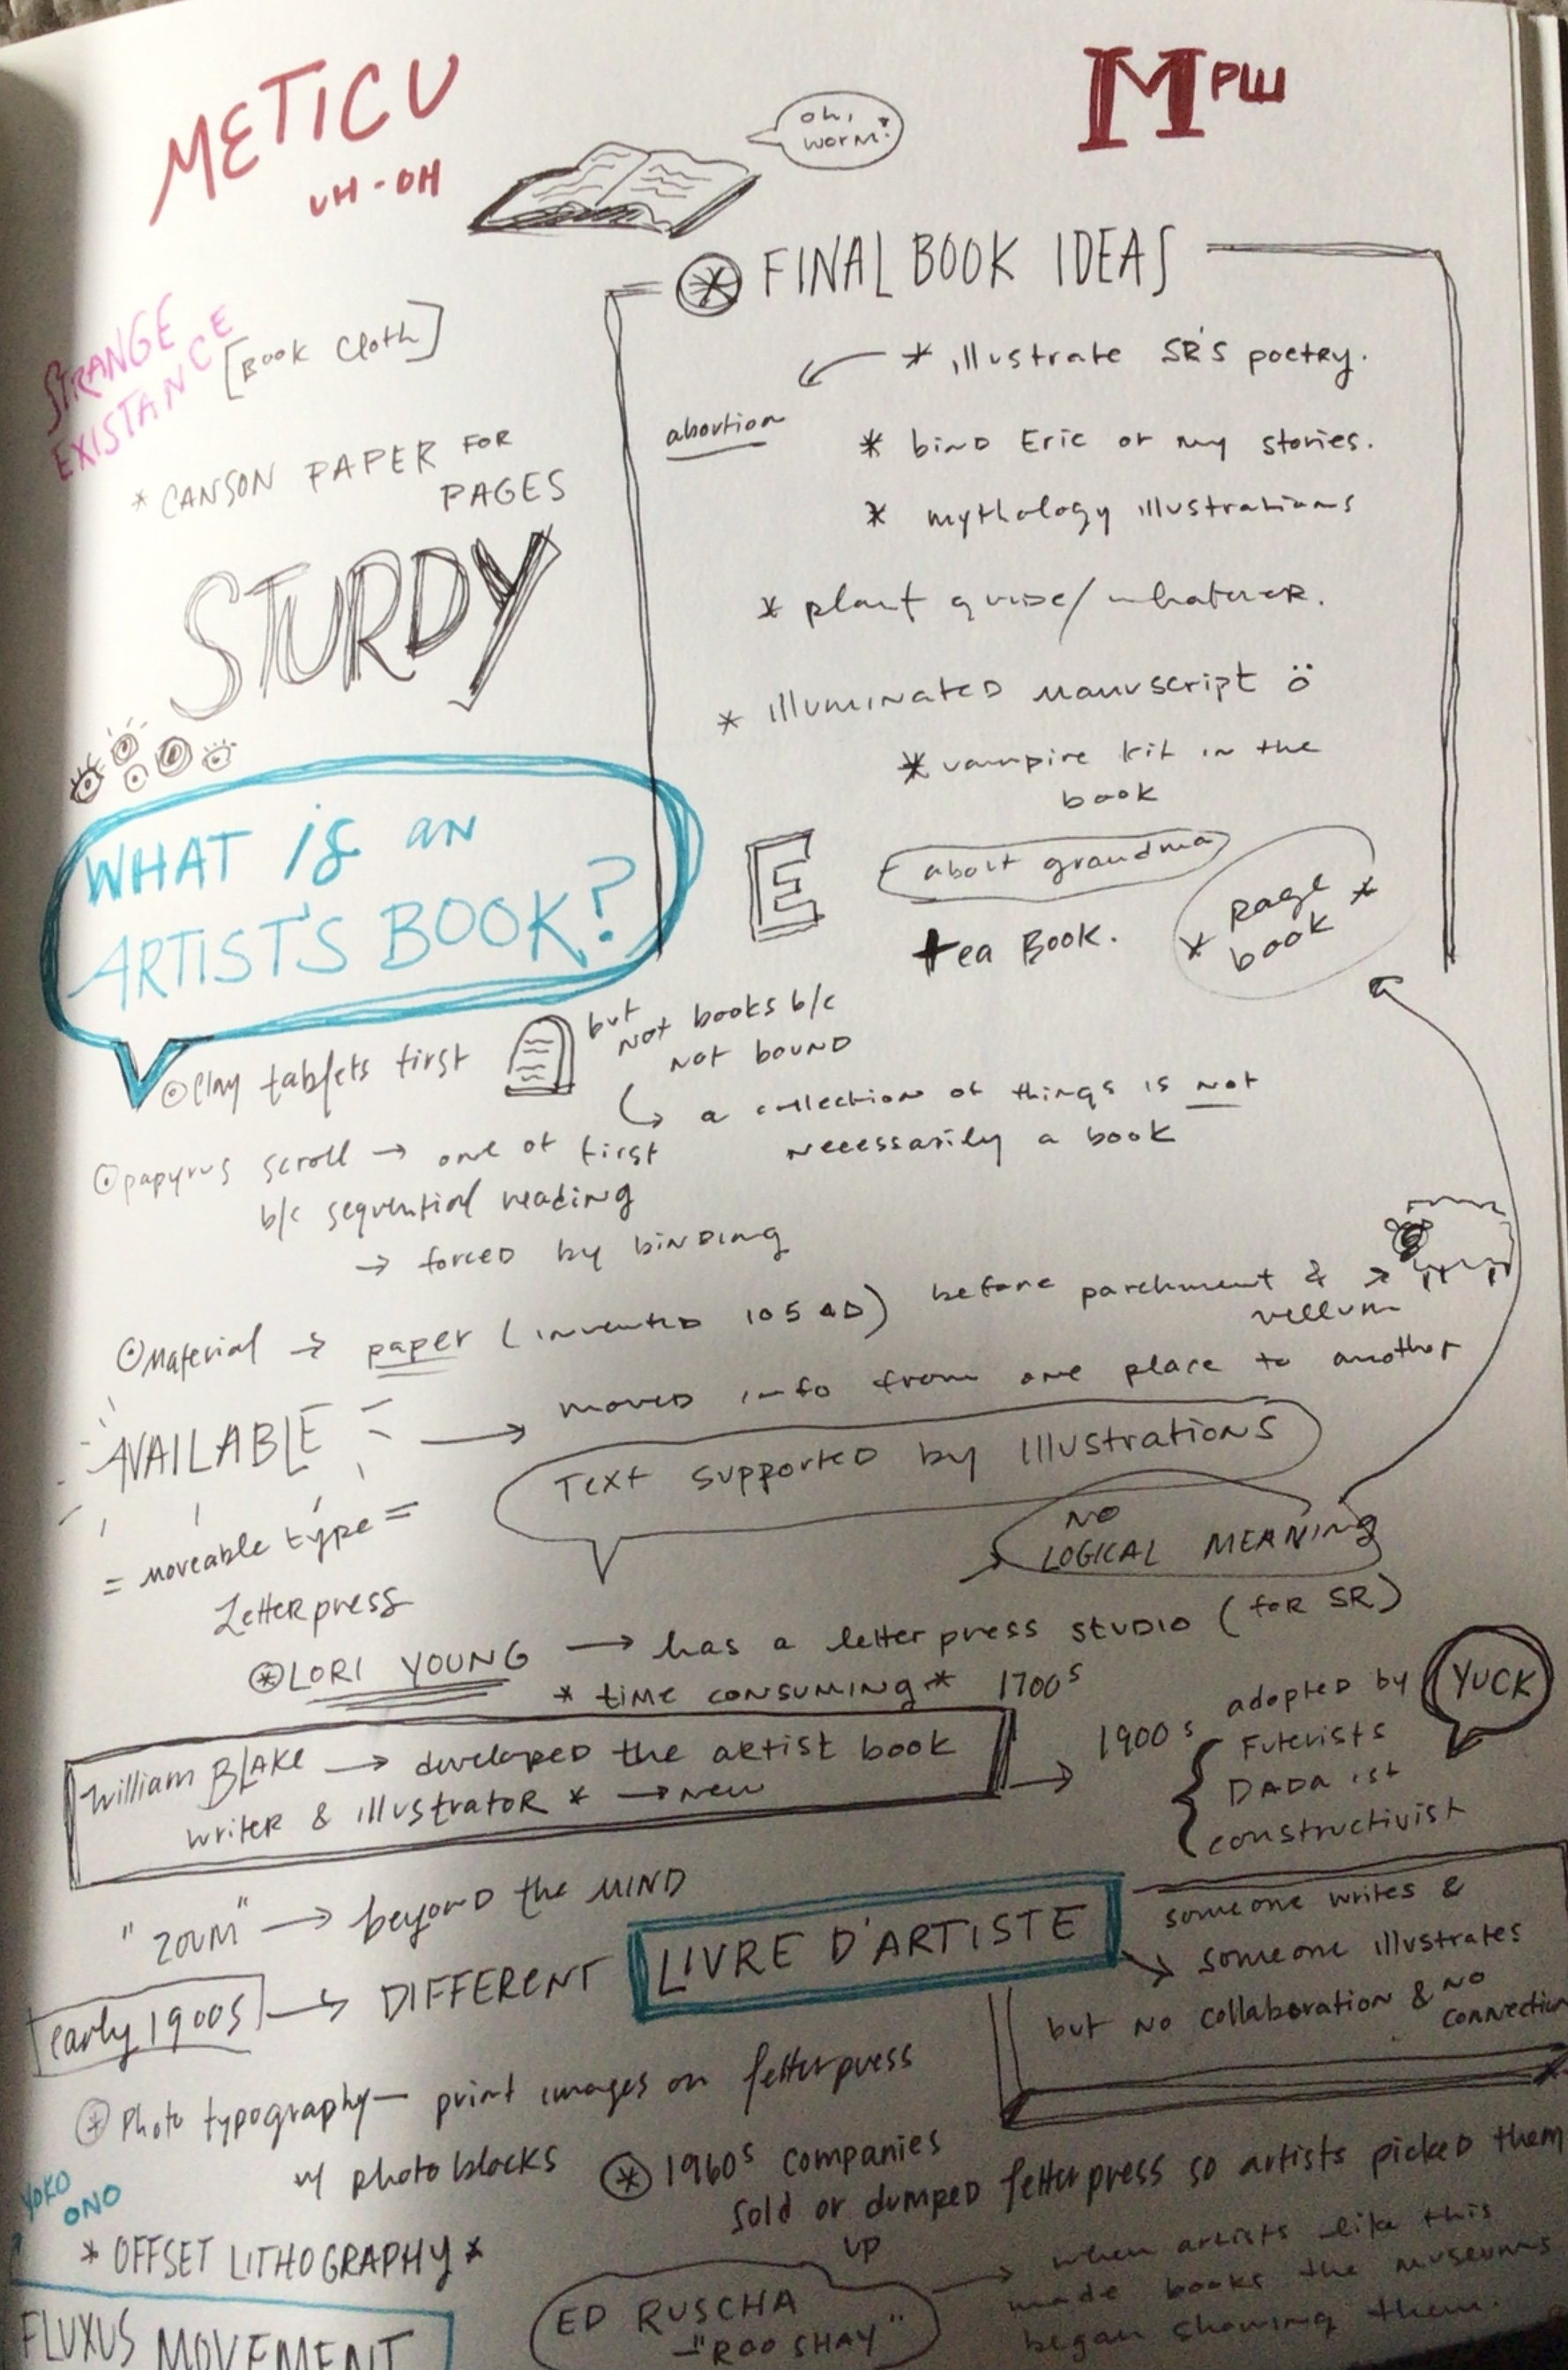 METICU
UH-OH
oh,
worm?
MPW
STRANGE
EXISTANCE
[BOOK Cloth]
* CANSON PAPER FOR
PAGES
STURDY
* FINAL BOOK IDEAS
* illustrate SR'S poetry.
abortion
* bind Eric or my stories.
* mythology illustrations
* plant guide/whatever.
* Illuminated manuscript
* vampire kit in the
book
E
about grandma
tea Book.
* Rage *
book
WHAT is an
ARTIST'S BOOK?
Clay tablets first
but
not books b/c
not bound
↳ a collection of things is not
necessarily a book
papyrus scroll → one of first
b/c sequential reading
→ forced by binding
Material → paper (invented 105 AD) before parchment & →
vellum
AVAILABLE → moved info from one place to another
Text supported by illustrations
NO
LOGICAL MEANING
= moveable type =
Letterpress
* LORI YOUNG → has a letterpress studio (for SR)
* time consuming *
1700s
William BLAKE → developed the artist book
writer & illustrator * → new
→ 1900s { adopted by
Futurists
DADAist
constructivist
YUCK
"ZOUM" → beyond the MIND
early 1900s → DIFFERENT
LIVRE D'ARTISTE
someone writes &
someone illustrates
but no collaboration & no
connection
* Photo typography — print images on letterpress
w/ photoblocks
* 1960s companies
sold or dumped letterpress so artists picked them
up
YOKO
ONO
* OFFSET LITHOGRAPHY *
FLUXUS MOVEMENT
ED RUSCHA
- "ROO SHAY"
→ when artists like this
made books the museums
began showing them.